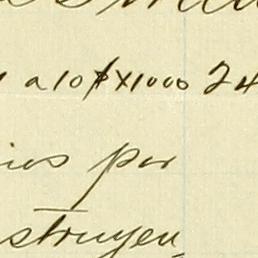 a 10 $ X 1000 24
ios por
struyen